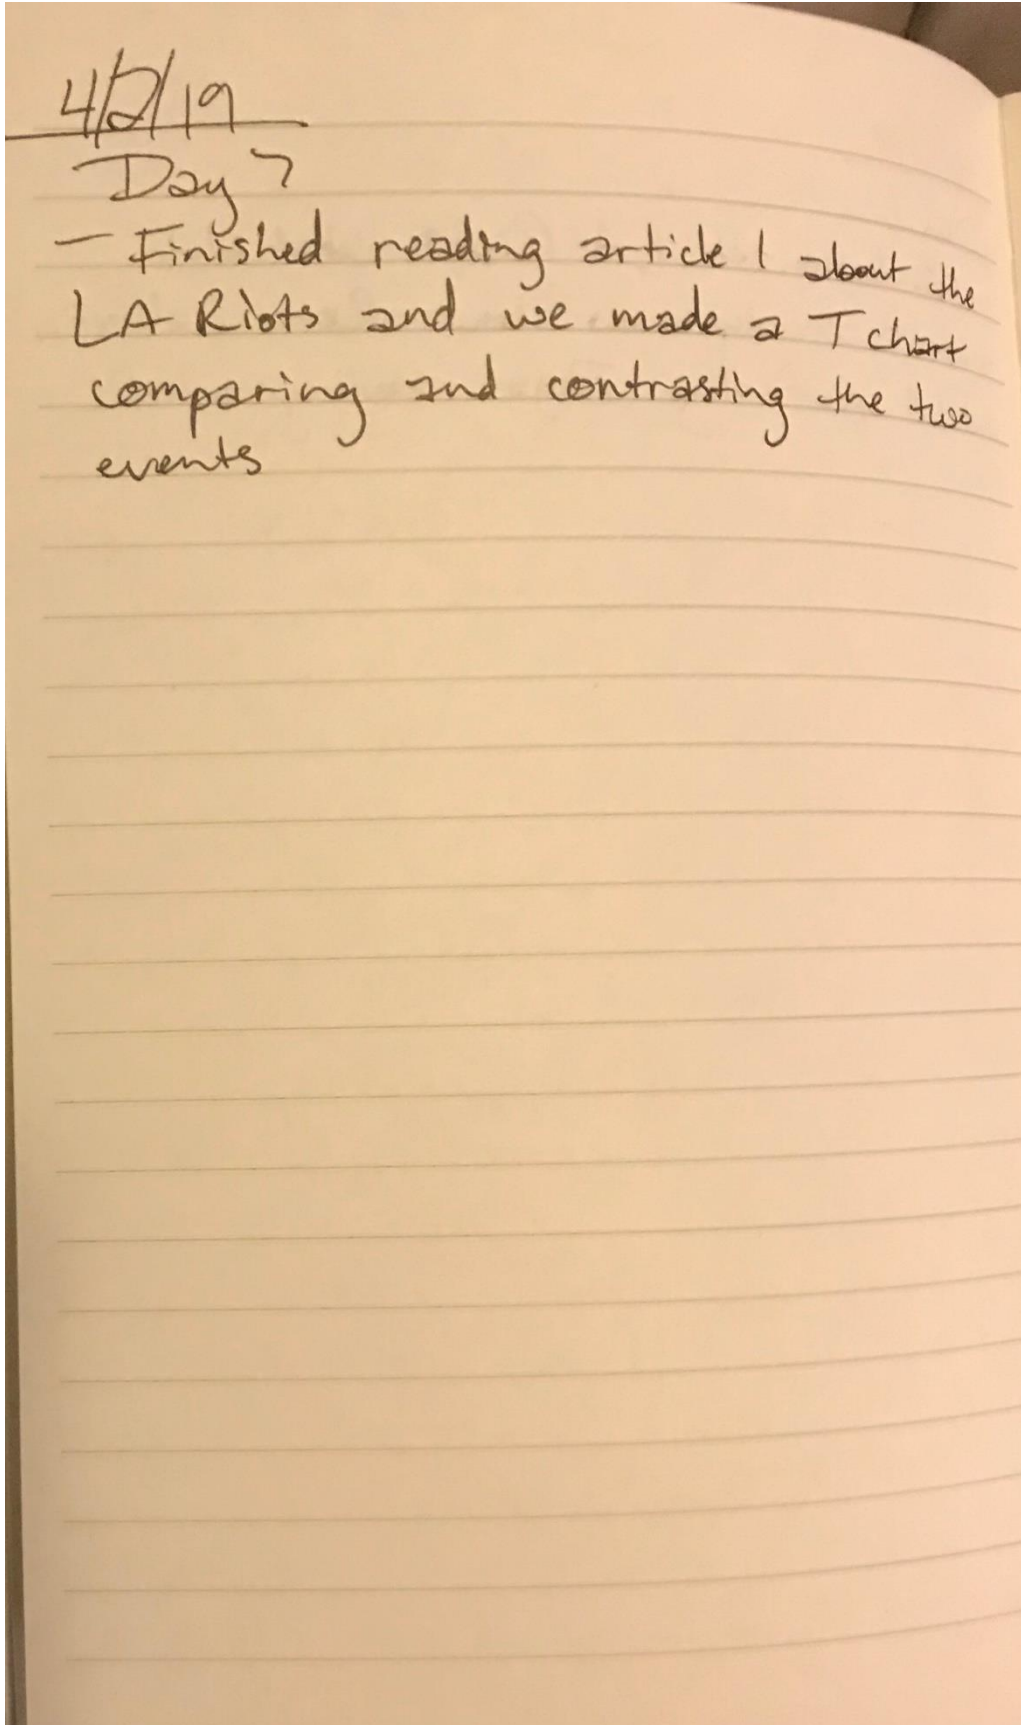 4/2/19
Day 7
- Finished reading article 1 about the
LA Riots and we made a T chart
comparing and contrasting the two
events